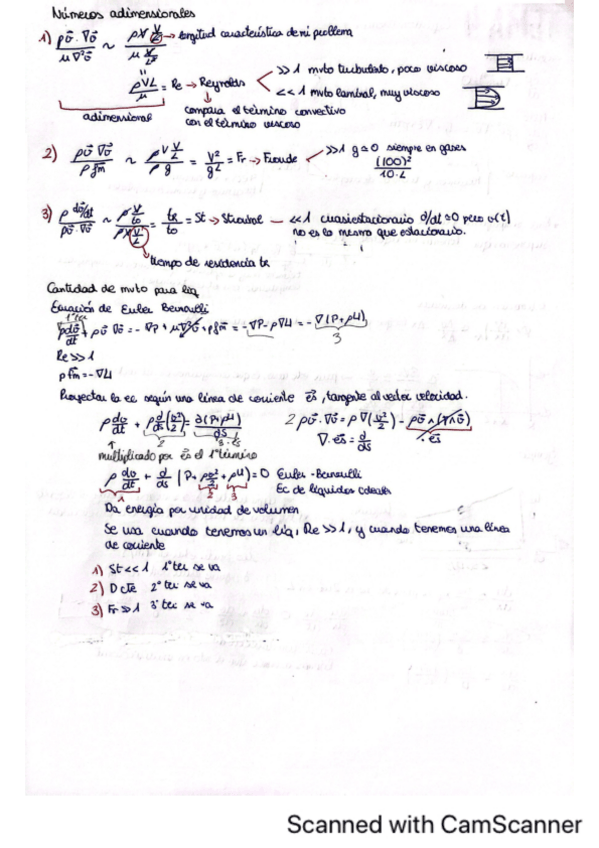 Números adimensionales
1) ρv̄·∇v̄ / μ∇²v̄ ~ ρV V/L / μ V/L² → longitud característica de mi problema
ρVL/μ = Re → Reynolds
>> 1 mvto turbulento, poco viscoso
<< 1 mvto laminar, muy viscoso
adimensional
compara el término convectivo
con el término viscoso
2) ρv̄ ∇v̄ / ρf̄m ~ ρV V/L / ρg = V²/gL = Fr → Froude
>>1 g≈0 siempre en gases
(100)²/10·L
3) ρ dv̄/dt / ρv̄·∇v̄ ~ ρ V/to / ρV V/L = tr/to = St → Strouhal — <<1 cuasiestacionario d/dt≈0 pero v(t)
no es lo mismo que estacionario.
tiempo de residencia tr
Cantidad de mvto para liq
Ecuación de Euler Bernoulli
1º tec
ρdv̄/dt + ρv̄ ∇v̄ = -∇P + μ∇²v̄ + ρf̄m = -∇P - ρ∇U = -∇(P+ρU)
3
Re >> 1
ρf̄m = -∇U
Proyectar la ec según una línea de corriente ēs, tangente al vector velocidad.
ρ dv/dt + ρ d/ds (v²/2) = ∂(P+ρU)/ds
2 ρv̄·∇v̄ = ρ∇(v²/2) - ρv̄∧(∇∧v̄)
2
3·ēs
∇·ēs = d/ds
·ēs
multiplicado por ēs el 1º término
ρ dv/dt + d/ds (P + ρv²/2 + ρU) = 0 Euler-Bernoulli
1 2 3
Ec de líquidos ideales
Da energía por unidad de volumen
Se usa cuando tenemos un liq, Re >> 1, y cuando tenemos una línea
de corriente
1) St << 1 1º tec se va
2) D cte 2º tec se va
3) Fr >> 1 3º tec se va
Scanned with CamScanner